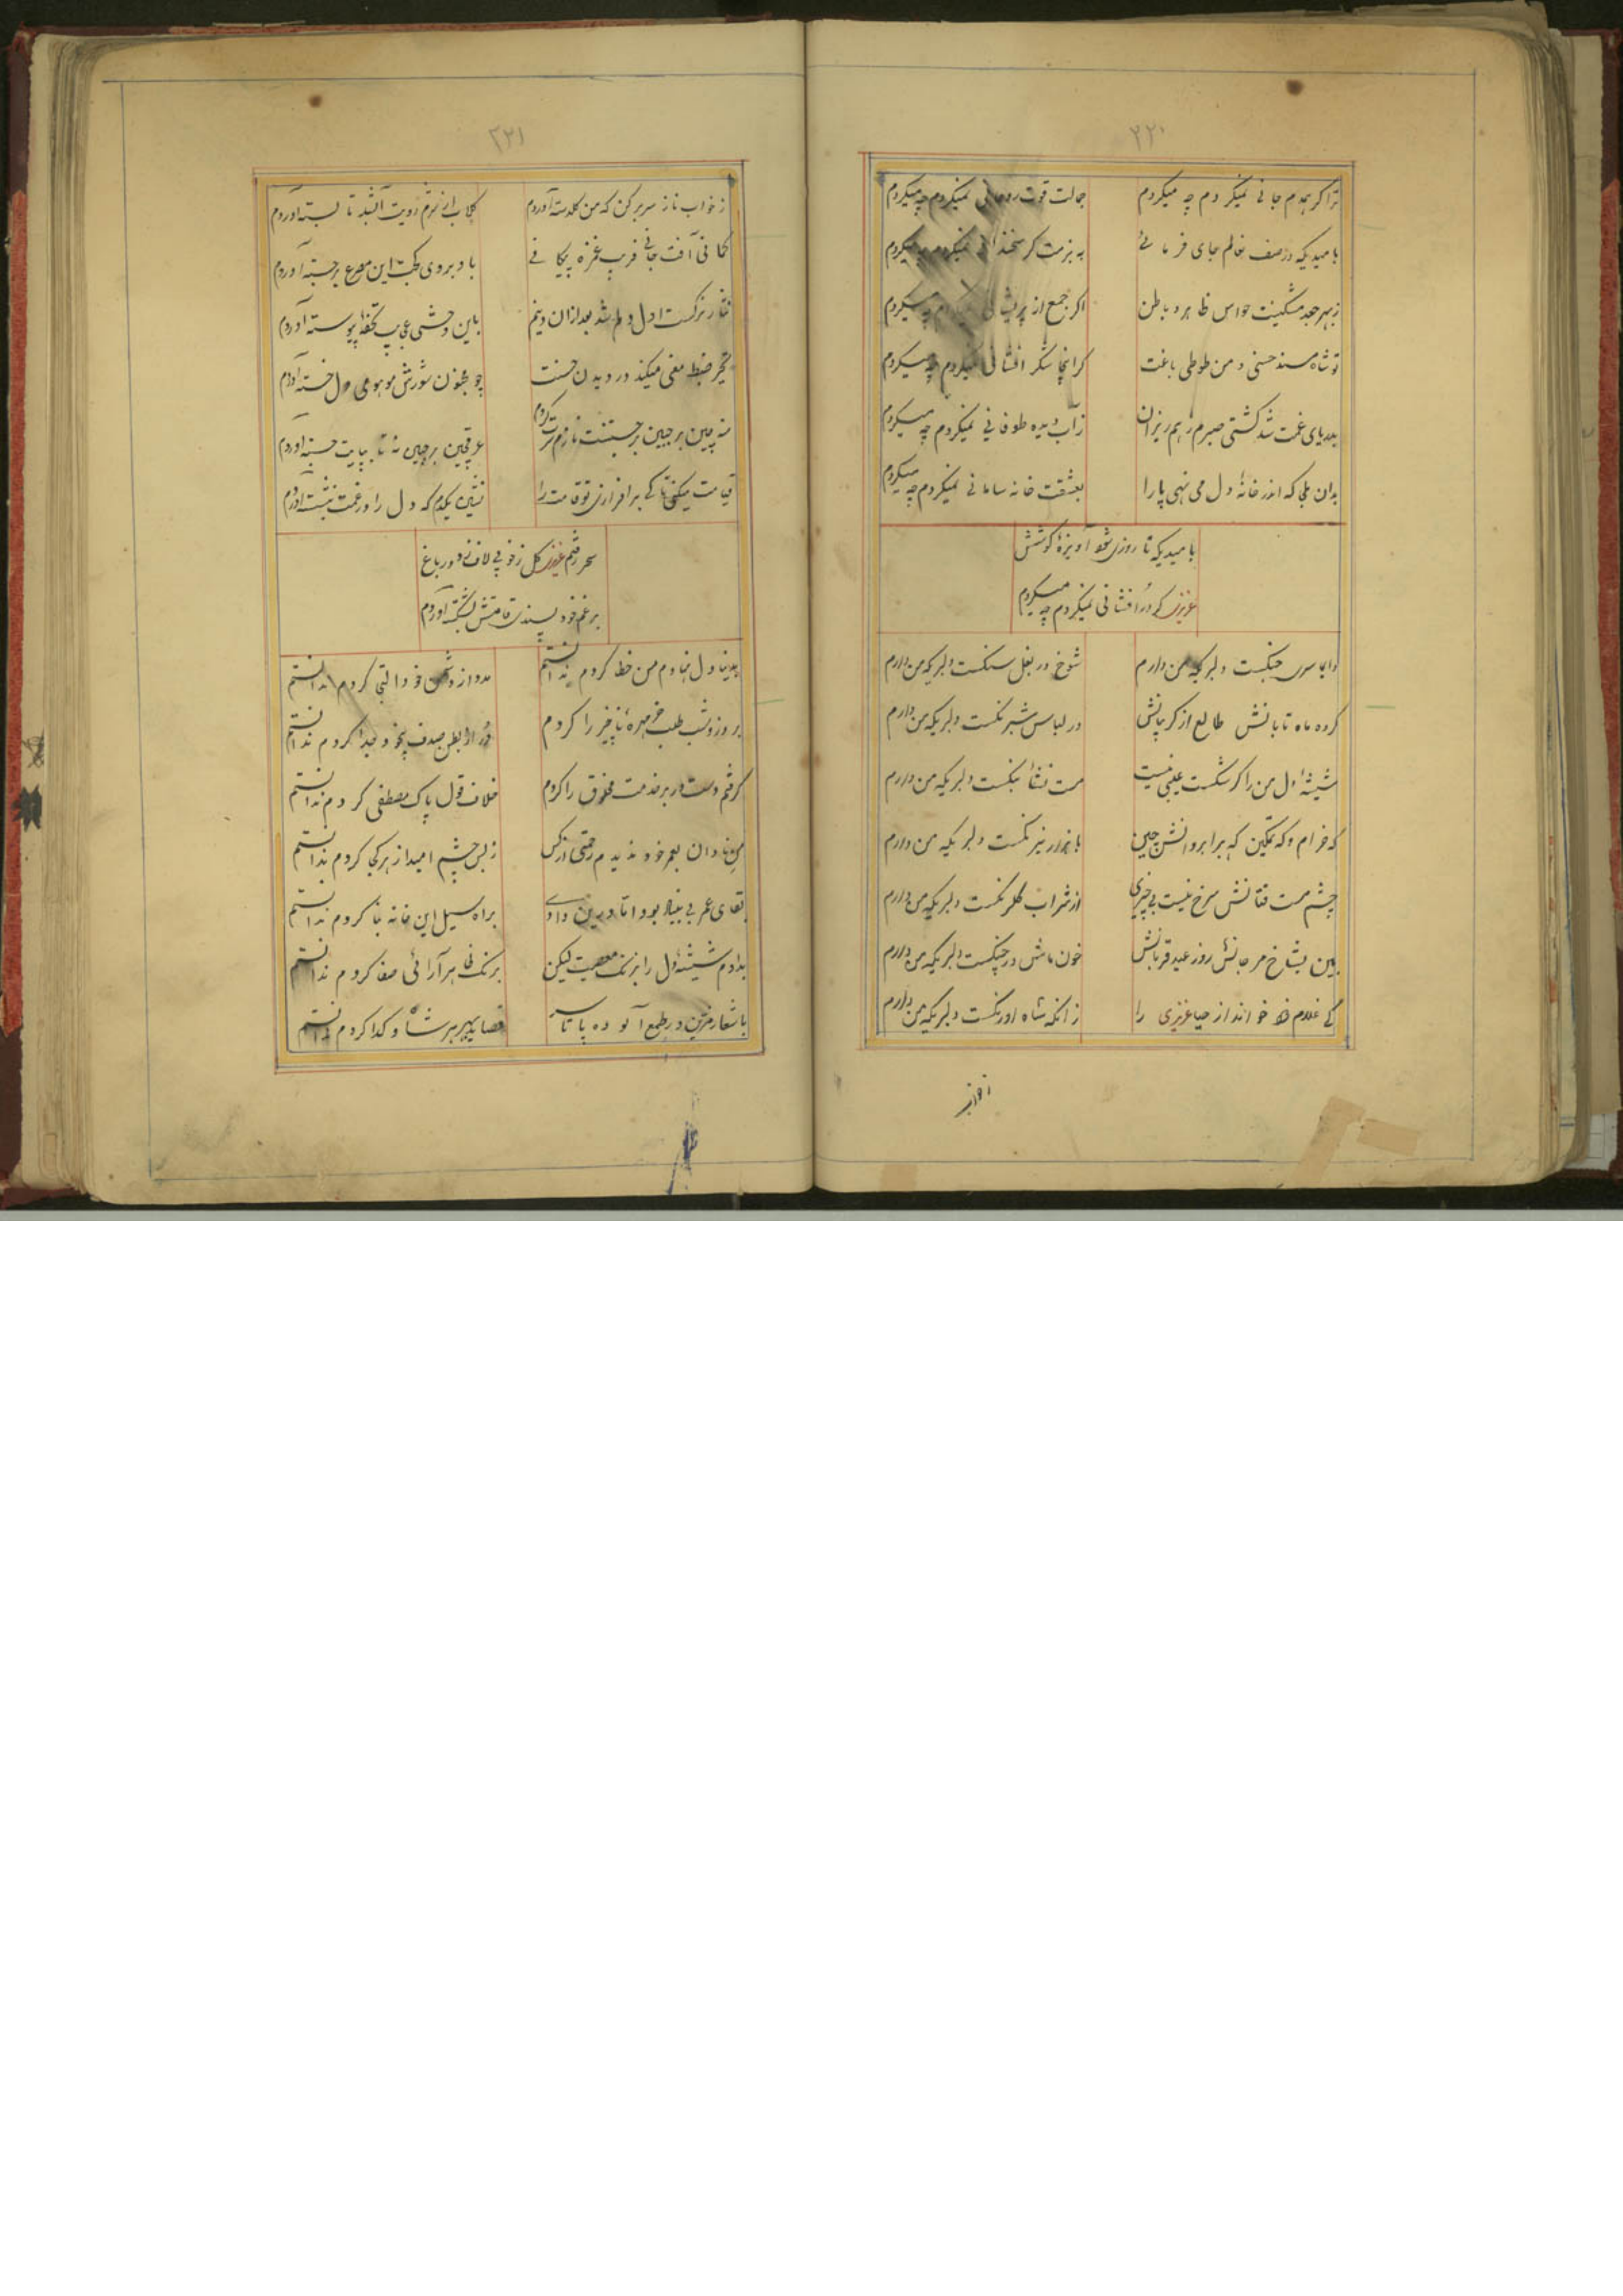 ۲۲۰
ترا گر همدم جانی نمیکردم چه میکردم جمالت قوت روحانی نمیکردم چه میکردم
بامیدیکه در صف نعالم جای فرمائی به بزمت گر نمیکردم چه میکردم
زهر جعد مشکینت حواس ظاهر و باطن اگر جمع از پریشانی نمیکردم چه میکردم
تو شاه مسند حسنی و من طوطی باغت گر اینجا شکر افشانی نمیکردم چه میکردم
بدریای غمت شد کشتی صبرم ز هم ریزان ز آب دیده طوفانی نمیکردم چه میکردم
بدان که اندر خانهٔ دل می نهی پا را بعشقت خانه سامانی نمیکردم چه میکردم
بامیدیکه تا روزی شود آویزهٔ گوشش
عزیزی گر دُر افشانی نمیکردم چه میکردم
جنگست دلبریکه من دارم شوخ در بغل سنگست دلبریکه من دارم
کرده ماه تابانش طالع از گریبانش در لباس شبرنگست دلبریکه من دارم
شیشهٔ دل من را گر شکست عیبی نیست مست نشأ بنگست دلبریکه من دارم
که خرام و که تمکین که بر ابروانش چین دلبریکه من دارم
چشم مست فتانش سرخ نیست بی چیزی از شراب گلرنگست دلبریکه من دارم
بین بشاخ مرجانش روز عید قربانش خون ماش در چنگست دلبریکه من دارم
کی غلام خود خواند از حیا عزیزی را زانکه شاه اورنگست دلبریکه من دارم
۲۲۱
ز خواب ناز سر بر کن که من گلدسته آوردم گلاب از شرم رویت آبشد تا بسته آوردم
کمانی آفت جانی فریب غمزه پیکانی بابروی کجت این مصرع برجسته آوردم
نثار نرگست اول دلم شد بعد ازان دینم باین وحشی عجایب تحفهٔ پیوسته آوردم
تحیر ضبط معنی میکند در دیدن حسنت چو مجنون شورش موهومی دل خسته آوردم
منه چین بر جبین نازم سرت گردم عرقچین بر جبین نه تا بپایت جسته آوردم
قیامت میکنی تا کی برافرازی تو قامت را نشین یکدم که دل را در غمت بنشسته آوردم
سحر رفتم عزیزی گل ز خوبی لاف زد در باغ
برغم خود پسندی قامتش بشکسته آوردم
بدنیا دل نهادم من خطا کردم ندانستم مدد از دشمن خود التجا کردم ندانستم
بروز و شب طلب خر مهرهٔ ناچیز را کردم دُر از بطن صدف بیخود جدا کردم ندانستم
گرفتم دست در بر خدمت مخلوق را کردم خلاف قول پاک مصطفی کردم ندانستم
من نادان بعمر خود ندیدم رحمتی از کس ز بس چشم امید از هر کجا کردم ندانستم
بقای عمر بی بنیاد بود اما درین وادی براه سیل این خانه بنا کردم ندانستم
بدادم شیشهٔ دل را بزنگ معصیت لیکن برنگ ظاهر آرائی صفا کردم ندانستم
باشعار مزین در طمع آلوده پا تا سر قصاید بهر هر شاه و گدا کردم ندانستم